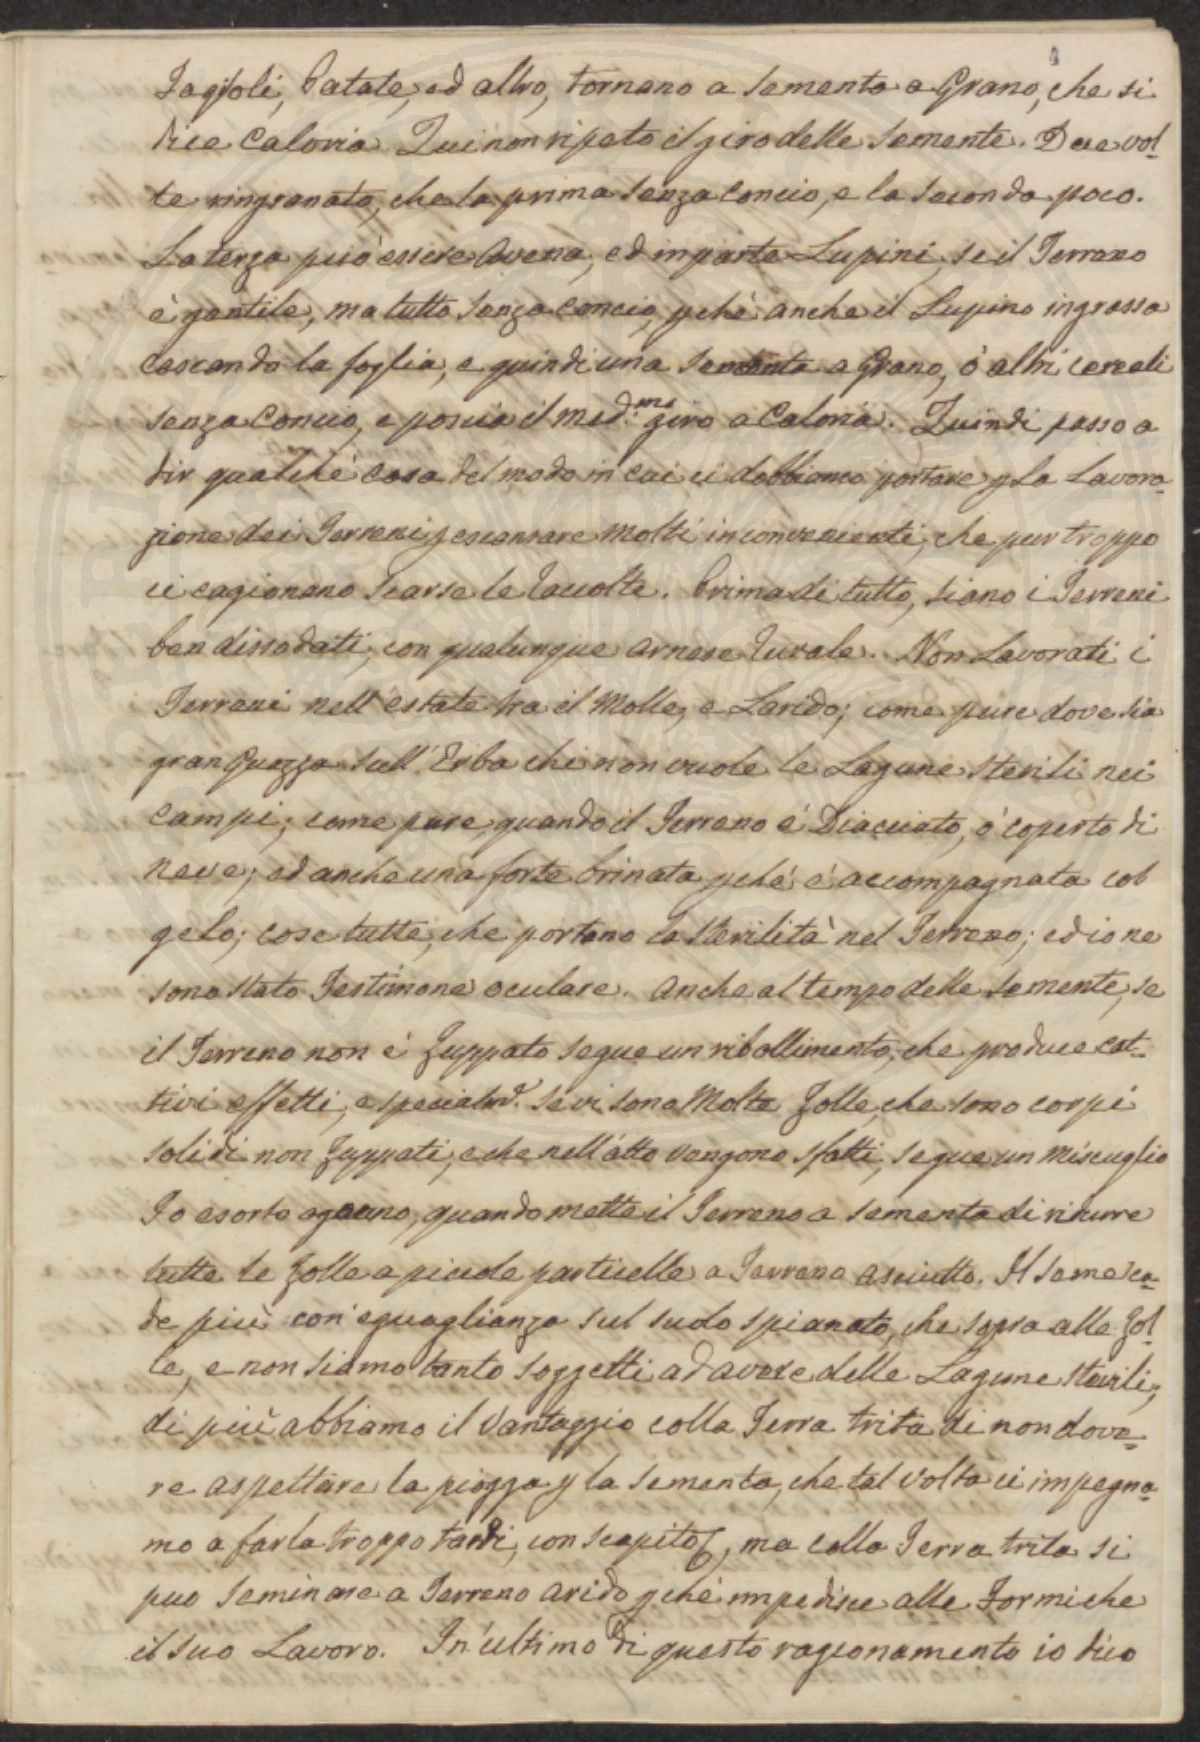 Fagioli, Patate, ed altro, tornano a Sementa a Grano, che si
dice Caloria Qui non ripeto il giro delle Semente. Due vol-
te ringranato, che la prima senza Concio, e la Seconda poco.
La terza può essere Avena, ed in parte Lupini, se il Terreno
è gentile, ma tutto senza Concio, pchè anche il Lupino ingrassa
cascando la foglia, e quindi una Sementa a Grano, ó altri cereali
senza Concio, e poscia il med.mo giro a Caloria. Quindi passo a
dir qualche cosa del modo in cui ci dobbiamo portare p la Lavora-
zione dei Terreni, p escansare molti inconvenienti, che pur troppo
ci cagionano Scarse le Raccolte. Prima di tutto, siano i Terreni
ben dissodati, con qualunque Arnese Rurale. Non Lavorati i
Terreni nell'estate tra il Molle, e Larido; come pure dove sia
gran Guazza sull'Erba chi non vuole le Lagune Sterili nei
Campi; come pure, quando il Terreno é Diacciato, ó coperto di
Neve; ed anche una forte brinata pchè é accompagnata col
gelo; cose tutte, che portano la Sterilità nel Terreno; ed io ne
sono stato Testimone oculare. Anche al tempo delle Semente, se
il Terreno non é Zuppato segue un ribollimento, che produce cat-
tivi effetti, e specialm. se vi sono Molte Zolle, che sono corpi
solidi non Zuppati, e che nell'atto vengono sfatti, segue un miscuglio
Io esorto ognuno, quando mette il Terreno a Sementa di ridurre
tutte le Zolle a piccole particelle a Terreno asciutto. Il Seme ca-
de più con eguaglianza sul suolo spianato, che sopra alle Zol-
le, e non siamo tanto soggetti ad avere delle Lagune sterili;
di più abbiamo il Vantaggio colla Terra trita di non dove-
re aspettare la pioggia p la Sementa, che tal volta ci impegna-
mo a farla troppo tardi, con scapito, ma colla Terra trita si
puo Seminare a Terreno arido pchè impedisce alle Formiche
il suo Lavoro. In ultimo di questo ragionamento io dico